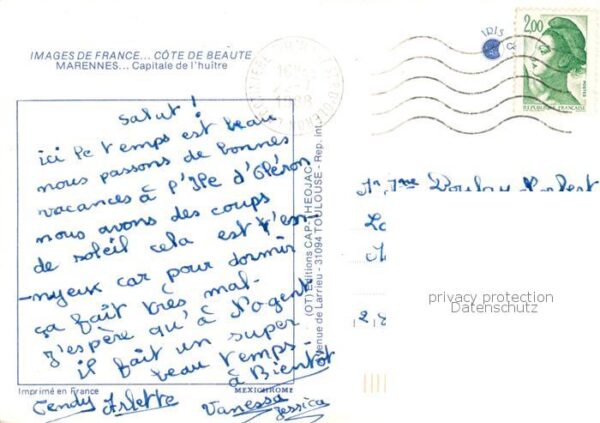 IMAGES DE FRANCE... CÔTE DE BEAUTE
MARENNES... Capitale de l'huître
IRIS
2,00
POSTES
REPUBLIQUE FRANÇAISE
Salut !
ici le temps est beau
nous passons de bonnes
vacances à l'Ile d'Oléron
nous avons des coups
de soleil cela est t'en-
-nuyeux car pour dormir
ça fait très mal-
J'espère qu'à Nogent
il fait un super
beau temps-
à Bientôt
Cendy Arlette
Vanessa
Jessica
(OT) Editions CAP-THEOJAC
Avenue de Larrieu - 31094 TOULOUSE - Rep. int.
Imprimé en France
MEXICHROME
privacy protection
Datenschutz